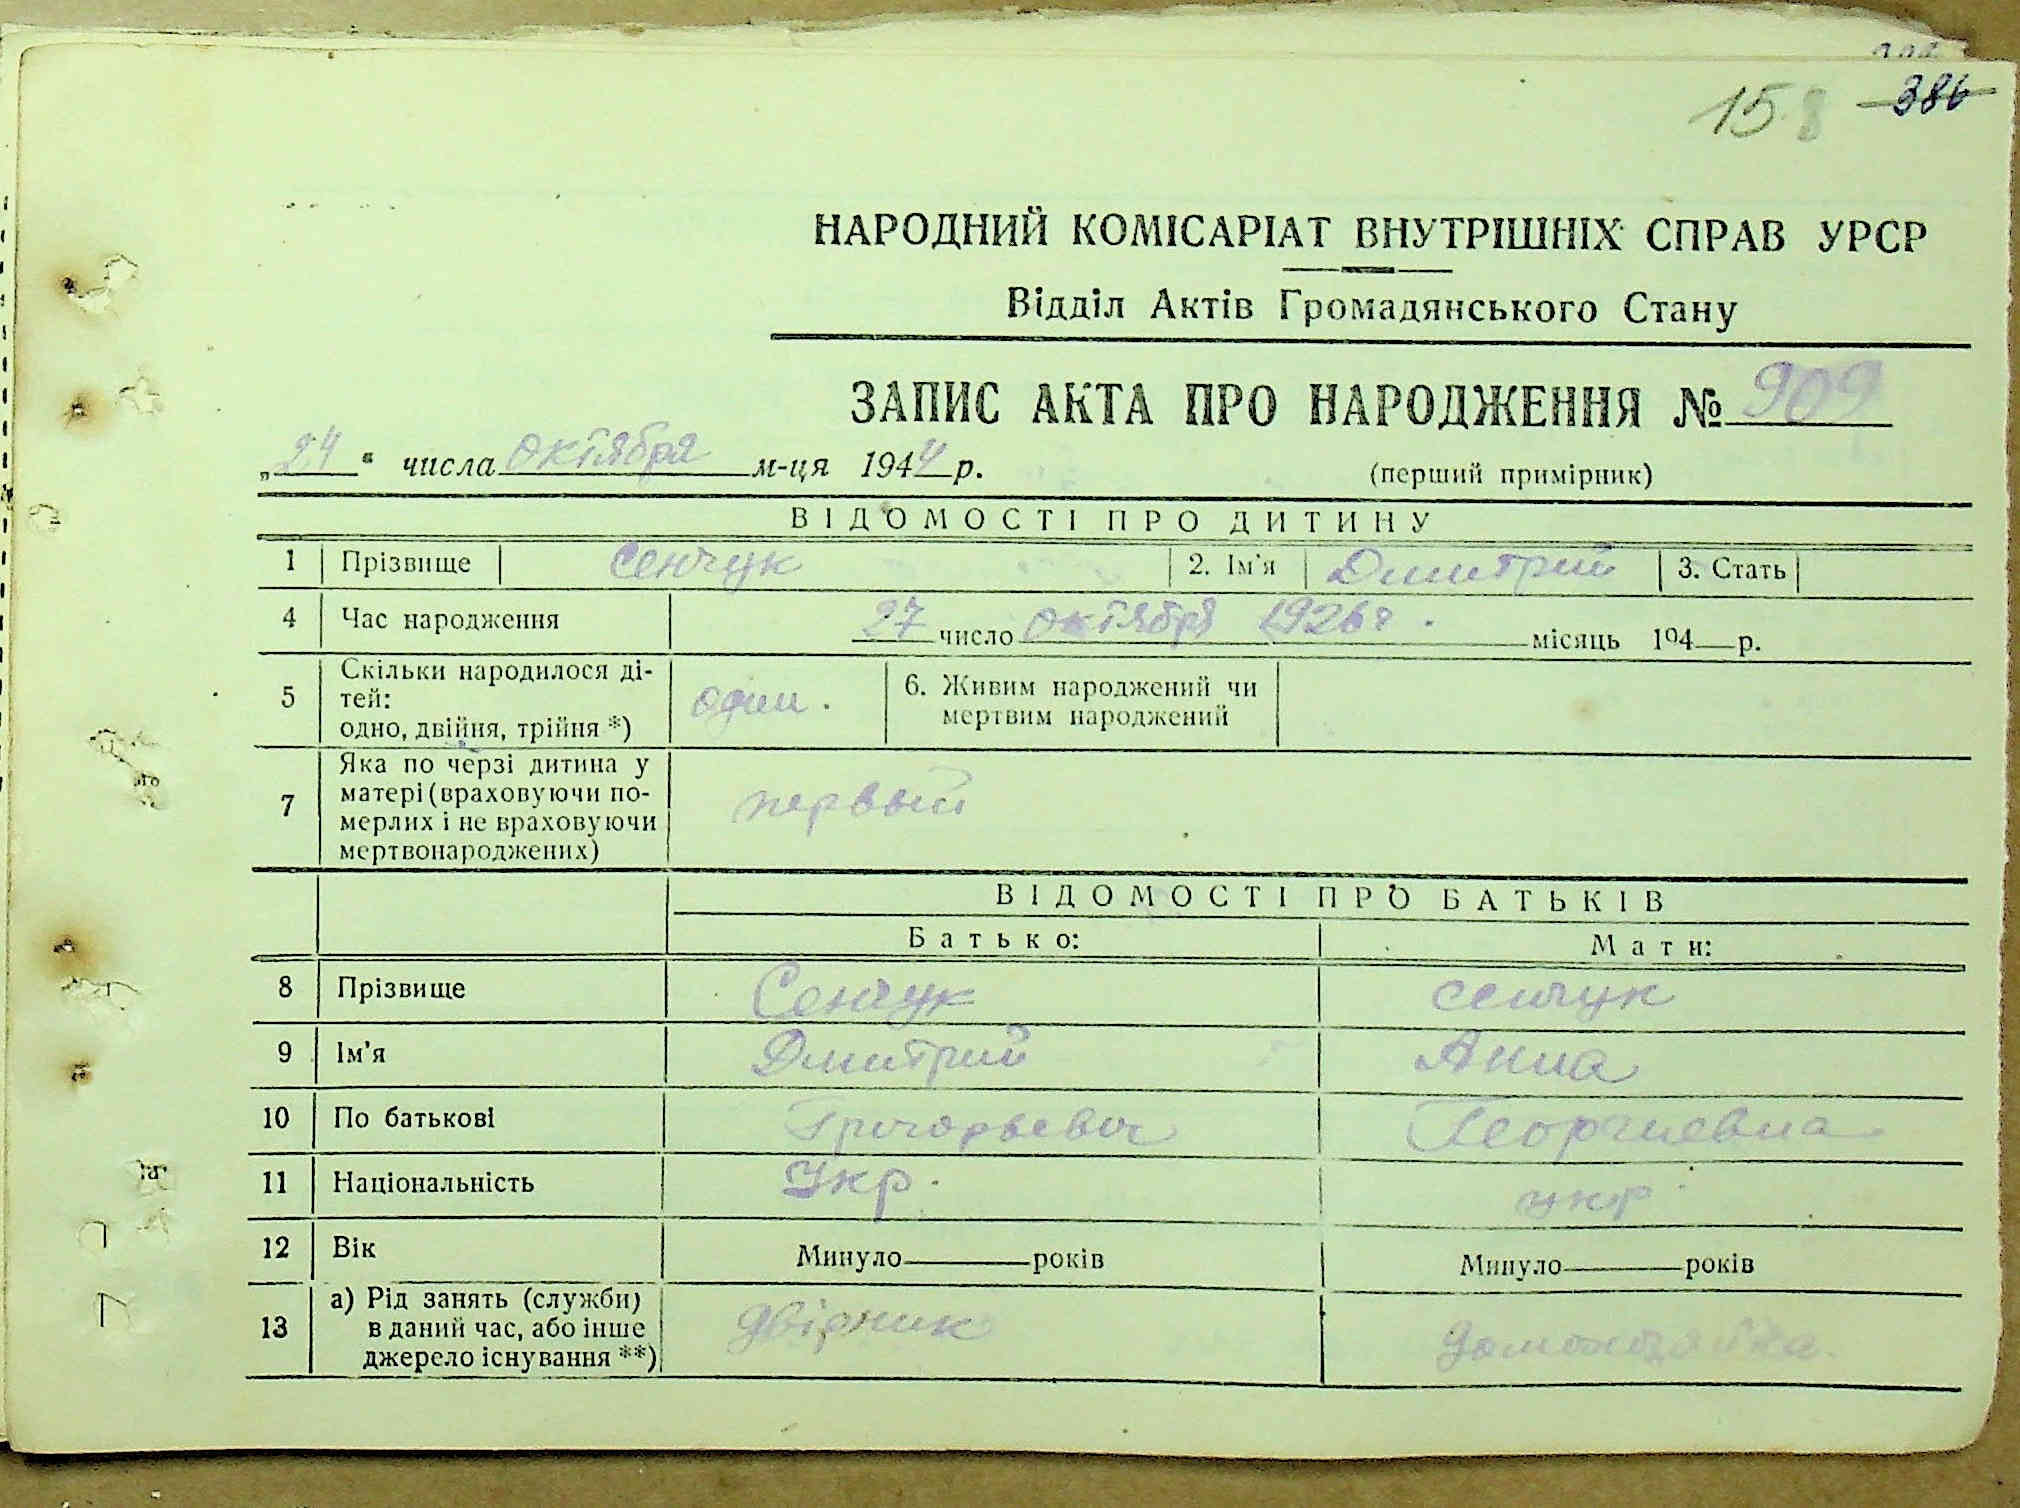 158 386
НАРОДНИЙ КОМІСАРІАТ ВНУТРІШНІХ СПРАВ УРСР
Відділ Актів Громадянського Стану
ЗАПИС АКТА ПРО НАРОДЖЕННЯ № 909
„24“ числа октября м-ця 1944 р.
(перший примірник)
ВІДОМОСТІ ПРО ДИТИНУ
1 Прізвище Сенчук 2. Ім'я Дмитрий 3. Стать
4 Час народження 27 число октября 1926 г. місяць 194 р.
5 Скільки народилося ді-
тей:
одно, двійня, трійня *) один. 6. Живим народжений чи
мертвим народжений
7 Яка по черзі дитина у
матері (враховуючи по-
мерлих і не враховуючи
мертвонароджених) первый
ВІДОМОСТІ ПРО БАТЬКІВ
Батько: Мати:
8 Прізвище Сенчук Сенчук
9 Ім'я Дмитрий Анна
10 По батькові Григорьевич Георгиевна
11 Національність Укр. укр.
12 Вік Минуло років Минуло років
13 а) Рід занять (служби)
в даний час, або інше
джерело існування **) двірник домохозяйка.